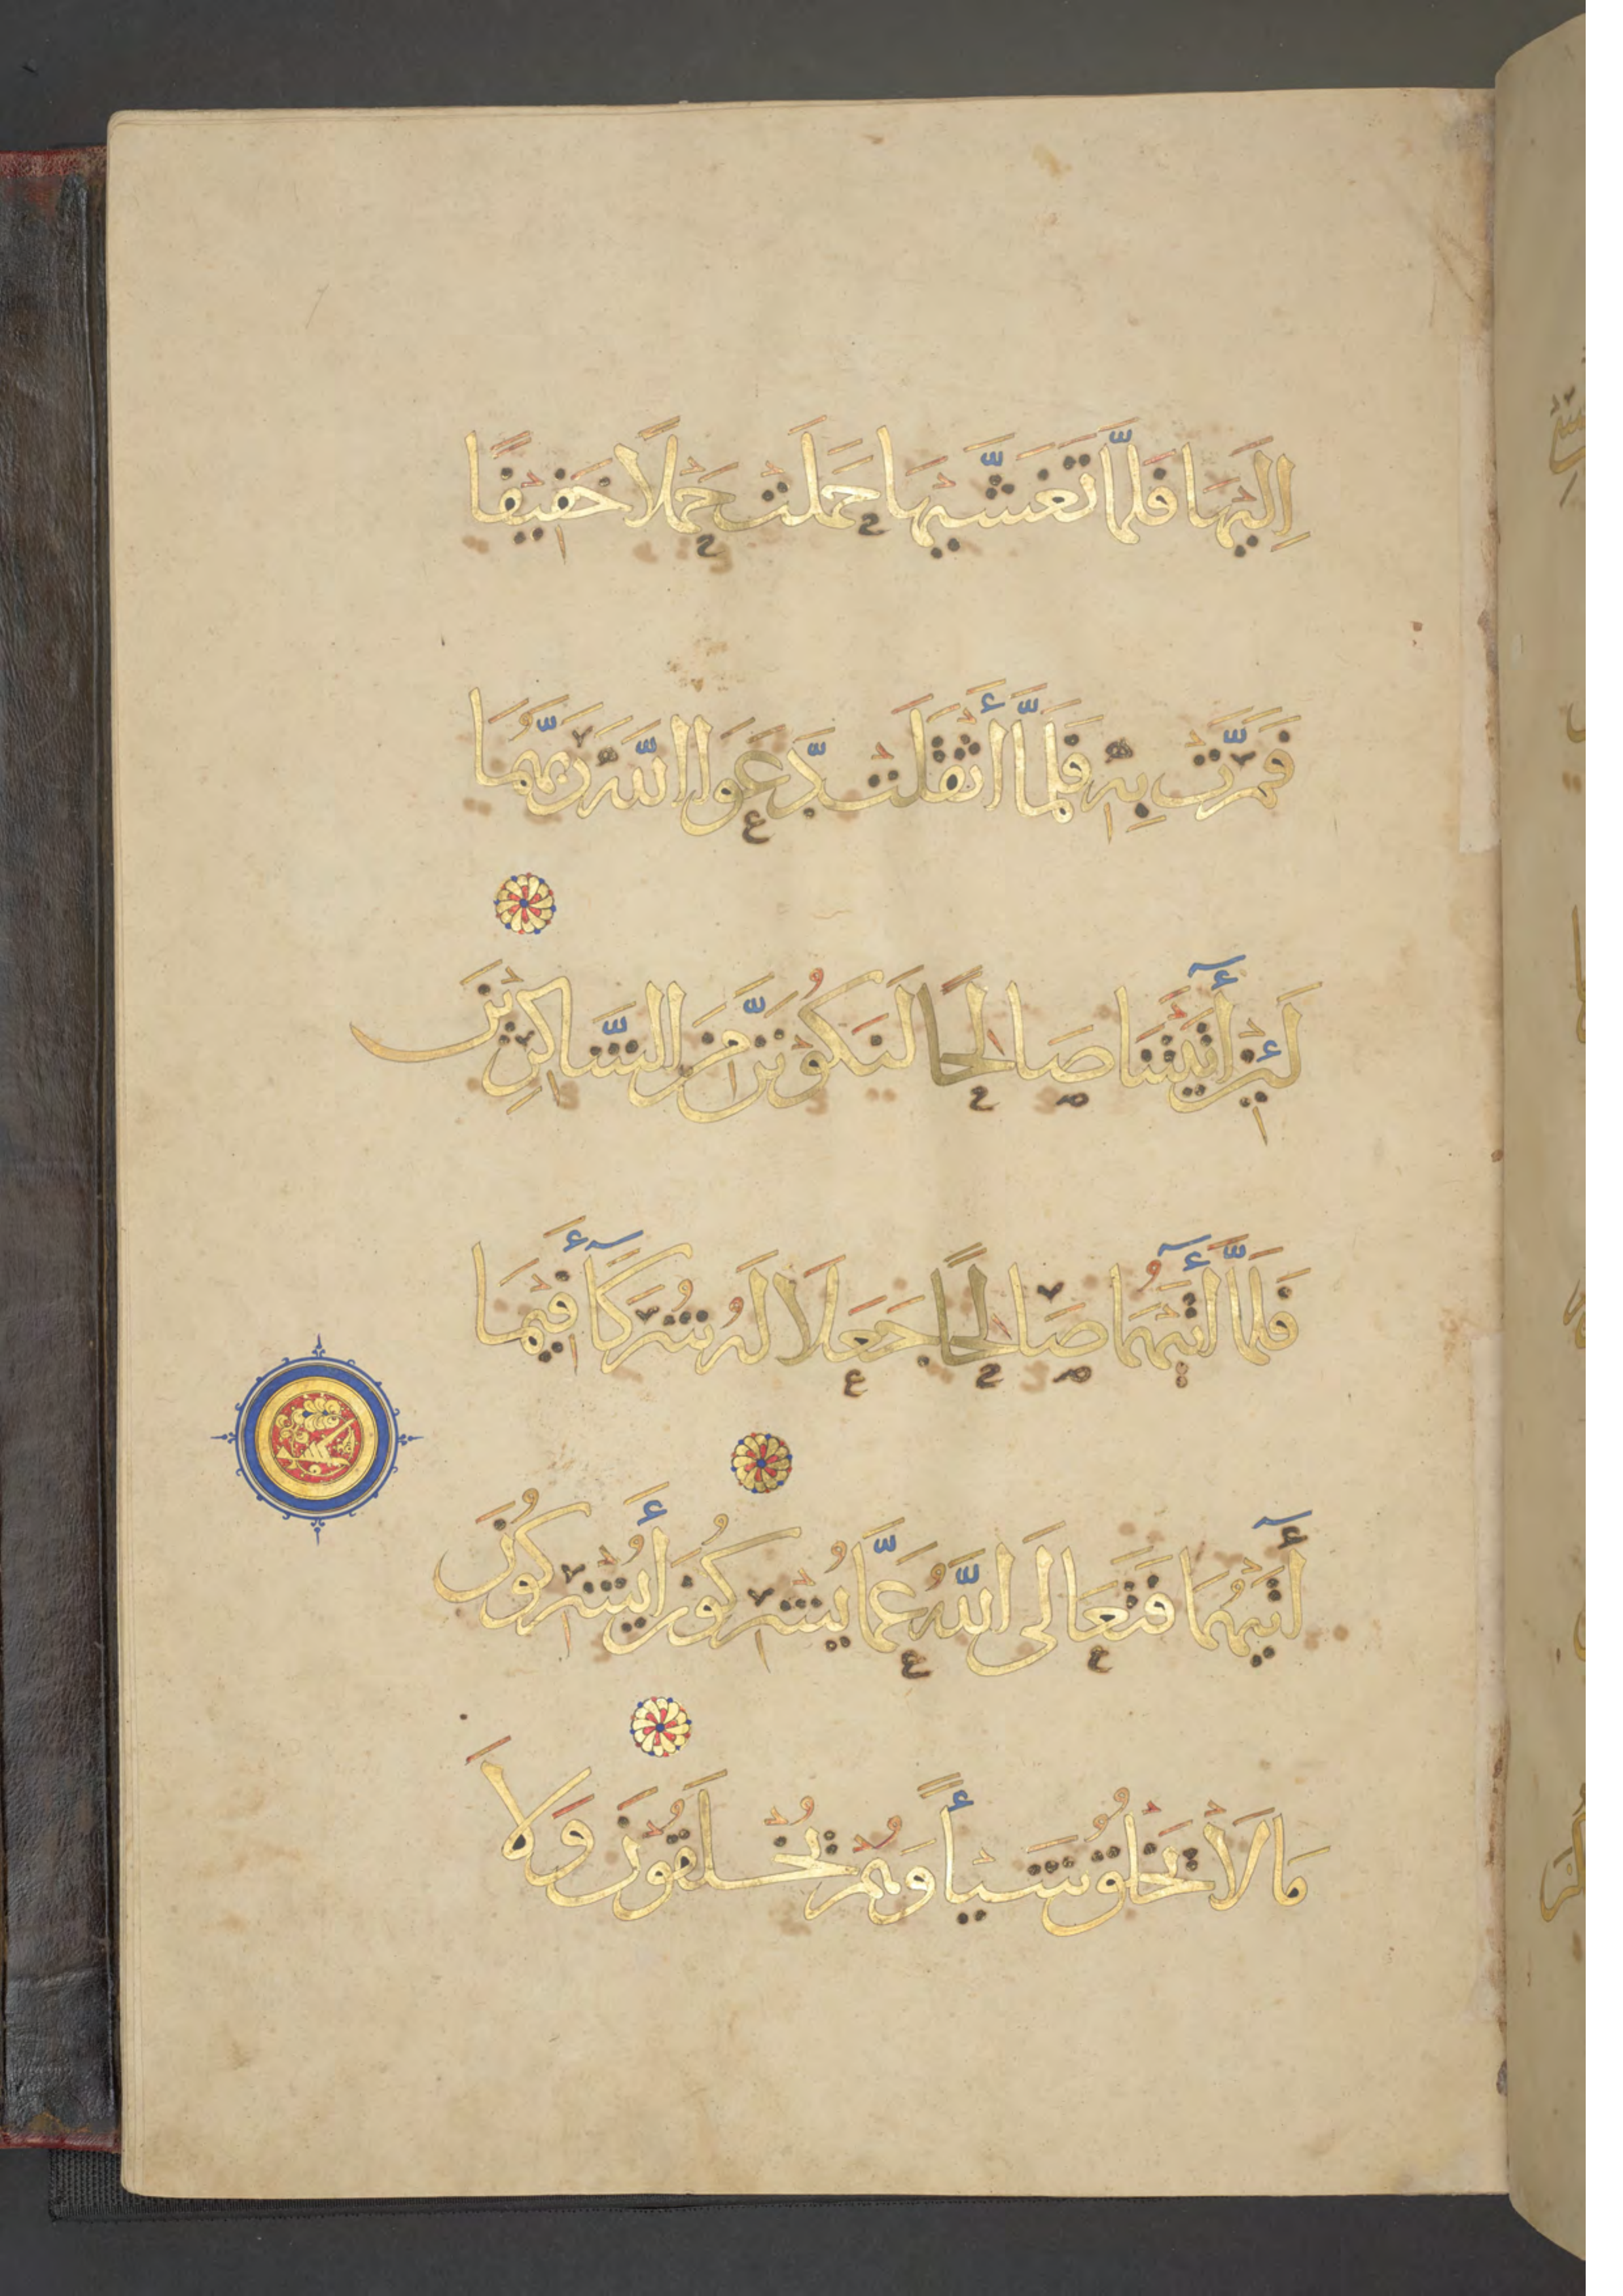 اِلَيْهَا فَلَمَّا تَغَشَّيهَا حَمَلَتْ حَمْلًا خَفِيْفًا
فَمَرَّتْ بِهٖ فَلَمَّا أَثْقَلَتْ دَّعَوَا اللّٰهَ رَبَّهُمَا
لَئِنْ أٓتَيْتَنَا صَالِحًا لَنَكُوْنَنَّ مِنَ الشَّاكِرِيْنَ
فَلَمَّا أٓتَيهُمَا صَالِحًا جَعَلَا لَهُ شُرَكَآءَ فِيْمَا
أٓتَيهُمَا فَتَعَالَى اللّٰهُ عَمَّا يُشْرِكُوْنَ أَيُشْرِكُوْنَ
مَا لَاْ يَخْلُقُ شَيْأً وَهُمْ يُخْلَقُوْنَ وَلَا